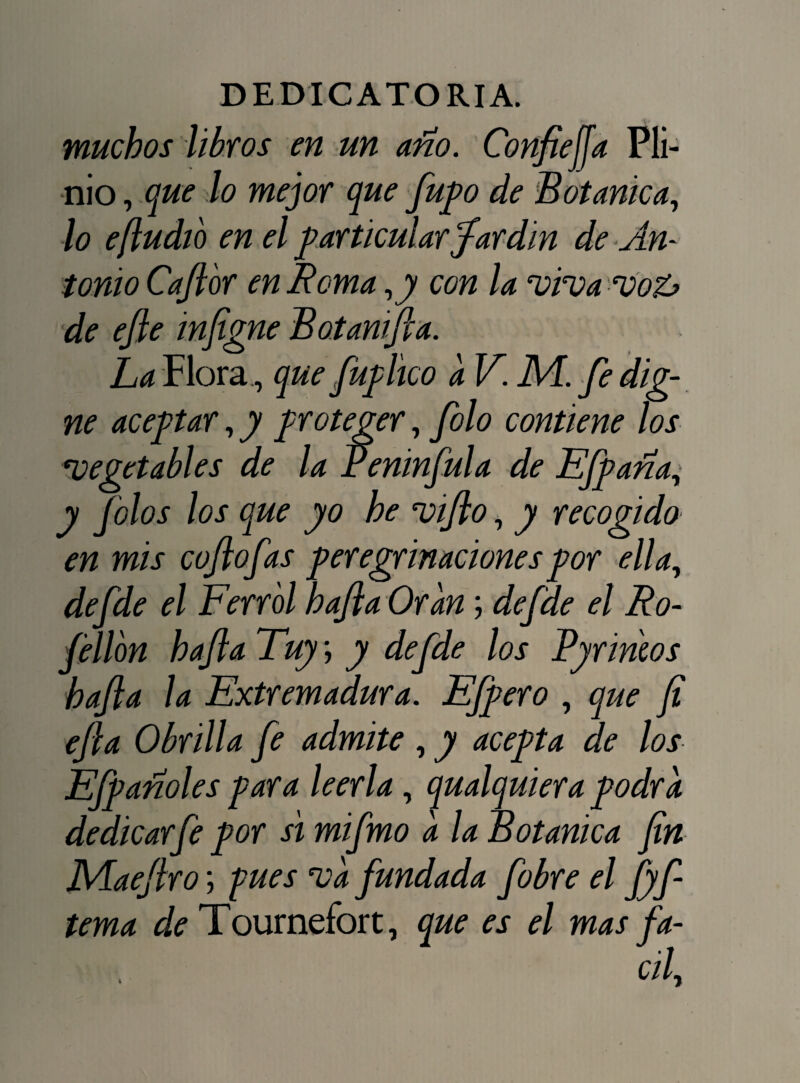 DEDICATORIA.
muchos libros en un año. Confieſſa Pli-
nio, que lo mejor que ſupo de Botanica,
lo eſtudiò en el particular Jardin de An-
tonio Caſtòr en Roma, y con la viva voz
de eſte inſigne Botaniſta.
La Flora, que ſuplico à V. M. ſe dig-
ne aceptar, y proteger, ſolo contiene los
vegetables de la Peninſula de Eſpaña,
y ſolos los que yo he viſto, y recogido
en mis coſtoſas peregrinaciones por ella,
deſde el Ferròl haſta Oràn; deſde el Ro-
ſellòn haſta Tuy; y deſde los Pyrinèos
haſta la Extremadura. Eſpero, que ſi
eſta Obrilla ſe admite, y acepta de los
Eſpañoles para leerla, qualquiera podrà
dedicarſe por sì miſmo à la Botanica ſin
Maeſtro; pues và fundada ſobre el ſyſ-
tema de Tournefort, que es el mas fa-
cil,